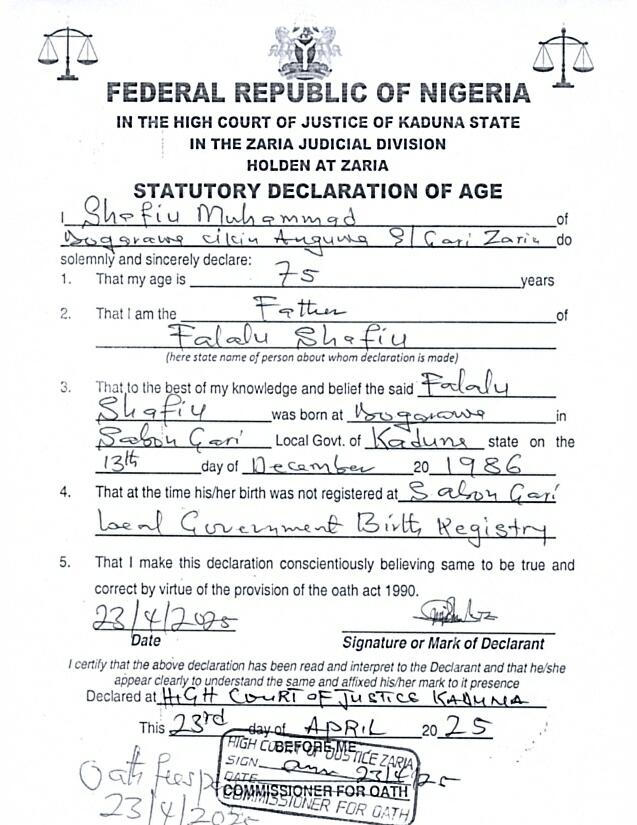 FEDERAL REPUBLIC OF NIGERIA
IN THE HIGH COURT OF JUSTICE OF KADUNA STATE
IN THE ZARIA JUDICIAL DIVISION
HOLDEN AT ZARIA
STATUTORY DECLARATION OF AGE
I Shafiu Muhammad of
Dogarawa cikin Anguwa S/Gari Zaria do
solemnly and sincerely declare:
1. That my age is 75 years
2. That I am the Father of
Falalu Shafiu
(here state name of person about whom declaration is made)
3. That to the best of my knowledge and belief the said Falalu
Shafiu was born at Dogarawa in
Sabon Gari Local Govt. of Kaduna state on the
13th day of December 20 1986
4. That at the time his/her birth was not registered at Sabon Gari
Local Government Birth Registry
5. That I make this declaration conscientiously believing same to be true and
correct by virtue of the provision of the oath act 1990.
23/4/2025
Date Signature or Mark of Declarant
I certify that the above declaration has been read and interpret to the Declarant and that he/she
appear clearly to understand the same and affixed his/her mark to it presence
Declared at HIGH COURT OF JUSTICE KADUNA
This 23rd day of APRIL 20 25
BEFORE ME
HIGH COURT OF JUSTICE ZARIA
SIGN
DATE 23/4/25
COMMISSIONER FOR OATH
COMMISSIONER FOR OATH
Oath fees
23/4/2025